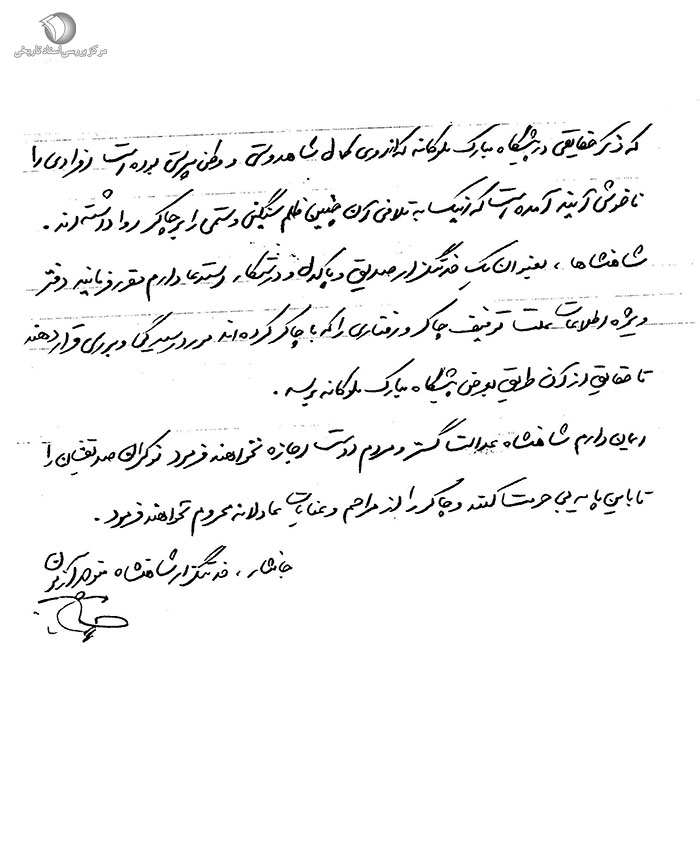 مرکز بررسی اسناد تاریخی
که ذکر حقایقی در پیشگاه مبارک ملوکانه که از روی کمال شاهدوستی و وطن پرستی بوده است افرادی را
ناخوش آیند آمده است که اینک به تلافی آن چنین ظلم سنگینی و ستمی را بر چاکر روا داشته اند.
شاهنشاها، بعنوان یک خدمتگزار صدیق و پاکدل و درستکار استدعا دارم مقرر فرمایند دفتر
ویژه اطلاعات علت توقیف چاکر و رفتاری را که با چاکر کرده اند مورد رسیدگی و بررسی قرار دهند
تا حقایق از آن طریق بعرض پیشگاه مبارک ملوکانه برسد.
ایمان دارم شاهنشاه عدالت گستر و مردم دوست اجازه نخواهند فرمود نوکران صدیقشان را
تا باین پایه بی حرمت کنند و چاکر را از مراحم و عنایات عادلانه محروم نخواهند فرمود.
جانثار، خدمتگزار شاهنشاه منوچهر آزمون